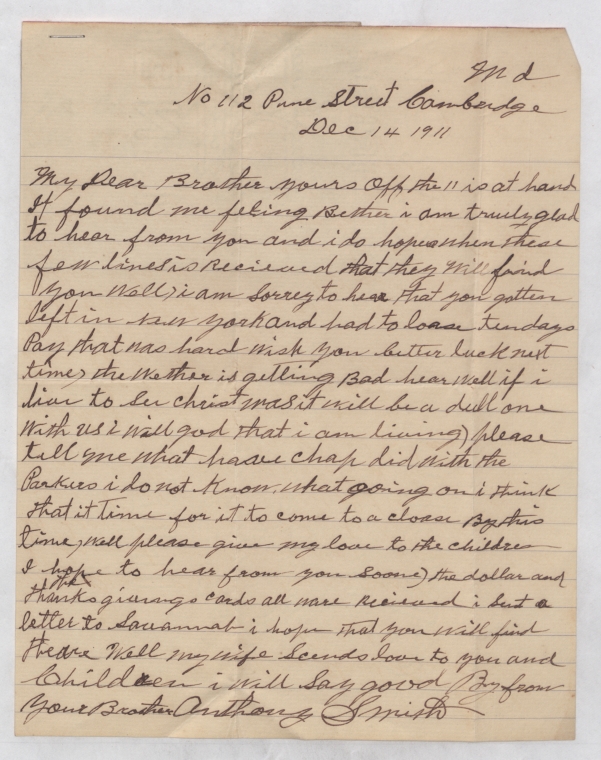 Md
No 112 Pine Street Cambredge
Dec 14 1911
My Dear Brother yours Off the 11 is at hand
It found me feling Bether i am truely glad
to hear from you and i do hope when these
few lines is Recieved that they Will find
you Well, i am Sorrey to hear that you gotten
left in New york and had to loase ten days
Pay that was hard wish you better luck next
time, the Wether is getting Bad hear Well if i
live to See christ mas it will be a dull one
With us i Will god that i am living, please
tell me What have chap did With the
Parkers i do not Know. what going on i think
that it time for it to come to a cloase By this
time, Well please give my love to the children
I hope to hear from you Soone, the dollar and
the thanks givings cards all ware Recieved i Sent a
letter to Savannah i hope that you Will find
theare Well my wife Scends love to you and
Children i Will Say good By from
your Brother Anthony Smith